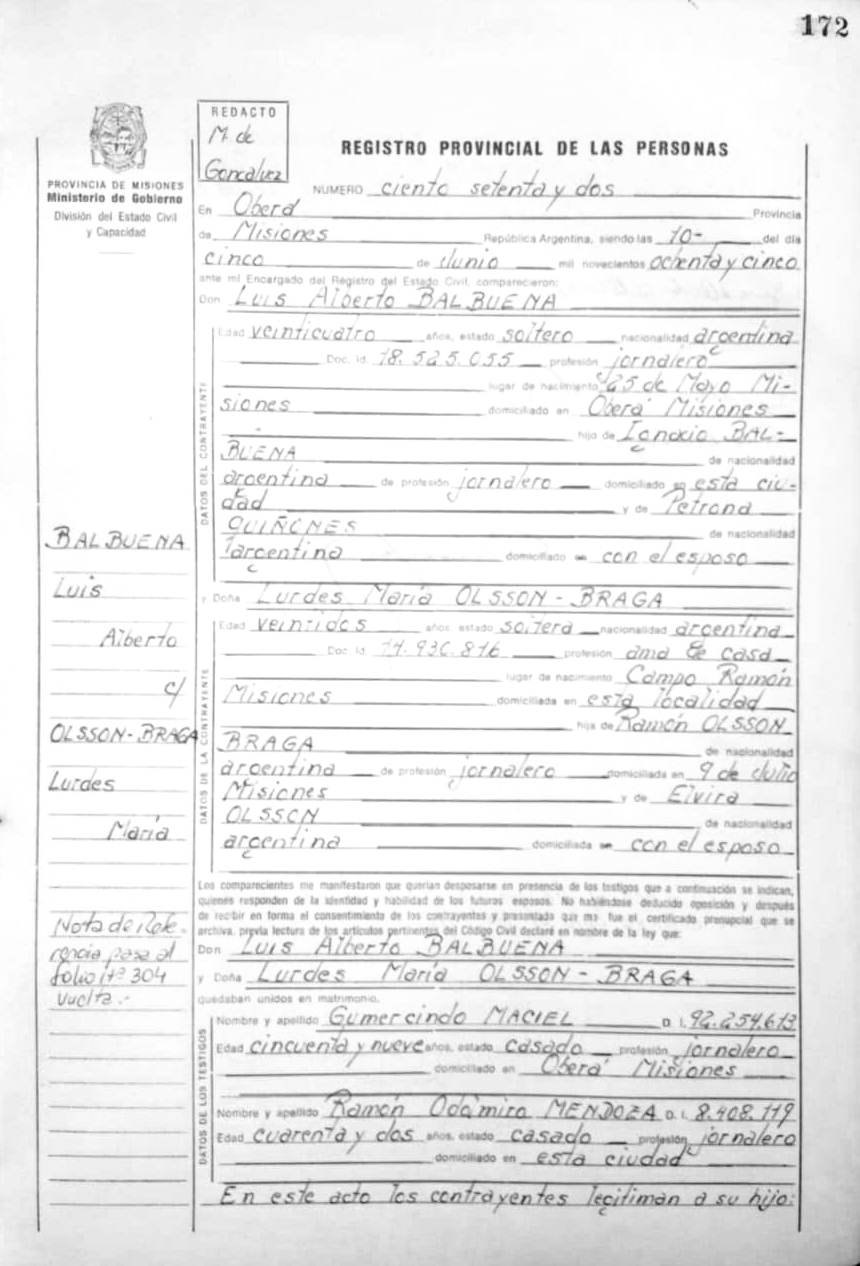 172
REDACTO
M. de
Goncalvez
PROVINCIA DE MISIONES
Ministerio de Gobierno
División del Estado Civil
y Capacidad
REGISTRO PROVINCIAL DE LAS PERSONAS
NUMERO ciento setenta y dos
En Oberá Provincia
de Misiones República Argentina, siendo las 10- del día
cinco de Junio mil novecientos ochenta y cinco
ante mi Encargado del Registro del Estado Civil, comparecieron:
Don Luis Alberto BALBUENA
DATOS DEL CONTRAYENTE
Edad veinticuatro años, estado soltero nacionalidad argentina
Doc. Id. 18.525.055 profesión jornalero
lugar de nacimiento 25 de Mayo Mi-
siones domiciliado en Oberá Misiones
hijo de Ignacio BAL-
BUENA de nacionalidad
argentina de profesión jornalero domiciliado en esta ciu-
dad y de Petrona
QUIÑONES de nacionalidad
argentina domiciliado con el esposo
y Doña Lurdes María OLSSON - BRAGA
DATOS DE LA CONTRAYENTE
Edad veintidos años, estado soltera nacionalidad argentina
Doc. Id. 14.930.816 profesión ama de casa
lugar de nacimiento Campo Ramón
Misiones domiciliada en esta localidad
hija de Ramón OLSSON
BRAGA de nacionalidad
argentina de profesión jornalero domiciliada en 9 de Julio
Misiones y de Elvira
OLSSON de nacionalidad
argentina domiciliada con el esposo
Los comparecientes me manifestaron que querían desposarse en presencia de los testigos que a continuación se indican,
quienes responden de la identidad y habilidad de los futuros esposos. No habiéndose deducido oposición y después
de recibir en forma el consentimiento de los contrayentes y presentado que me fue el certificado prenupcial que se
archiva, previa lectura de los artículos pertinentes del Código Civil declaré en nombre de la ley que:
Don Luis Alberto BALBUENA
y Doña Lurdes María OLSSON - BRAGA
quedaban unidos en matrimonio.
DATOS DE LOS TESTIGOS
Nombre y apellido Gumercindo MACIEL D. I. 92.254.613
Edad cincuenta y nueve años, estado casado profesión jornalero
domiciliado en Oberá Misiones
Nombre y apellido Ramón Odamiro MENDOZA D. I. 8.408.119
Edad cuarenta y dos años, estado casado profesión jornalero
domiciliado en esta ciudad
En este acto los contrayentes legitiman a su hijo:
BALBUENA
Luis
Alberto
c/
OLSSON - BRAGA
Lurdes
María
Nota de Refe-
rencia pasa al
folio nº 304
vuelta.-